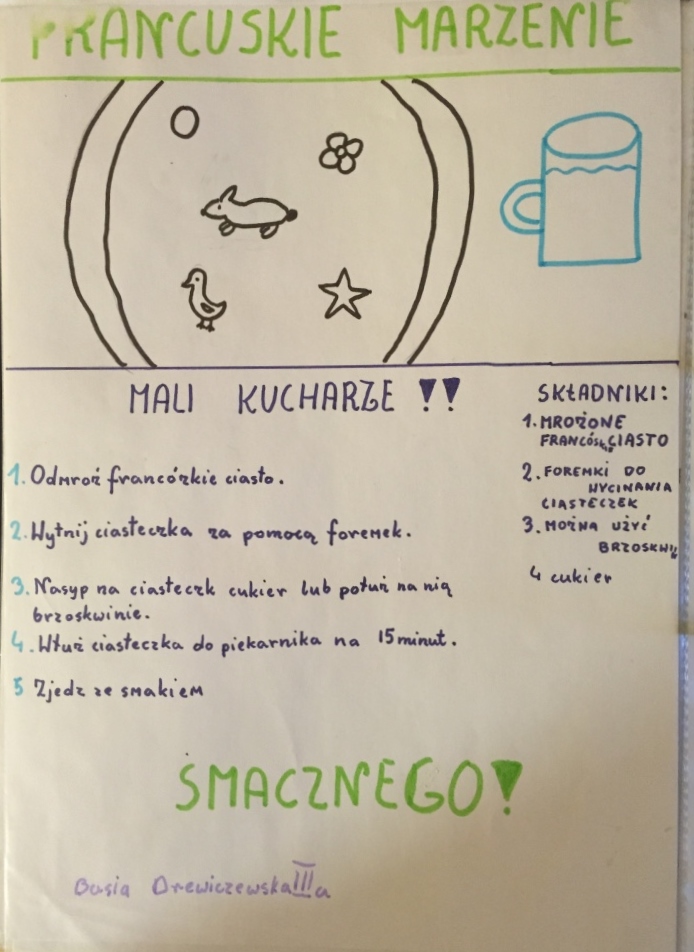 FRANCUSKIE MARZENIE
MALI KUCHARZE !!
1. Odmroź francózkie ciasto.
2. Wytnij ciasteczka za pomocą foremek.
3. Nasyp na ciasteczk cukier lub połuż na nią
brzoskwinie.
4. Włuż ciasteczka do piekarnika na 15 minut.
5 Zjedz ze smakiem
SKŁADNIKI:
1. MROŻONE
CIASTO
2. FOREMKI DO
WYCINANIA
CIASTECZEK
3. MOŻNA UŻYĆ
4 cukier
SMACZNEGO!
Basia Drewiczewska III a